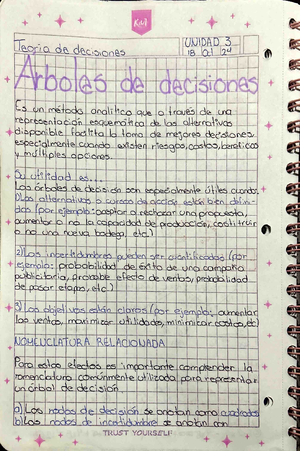 Teoría de decisiones
UNIDAD 3
18 01 24
Arboles de decisiones
Es un método analítico que a través de una
representación esquemática de las alternativas
disponible facilita la toma de mejores decisiones,
especialmente cuando existen riesgos, costos,
y múltiples opciones.
Su utilidad es...
Los árboles de decisión son especialmente útiles cuando:
1) Las alternativas o cursos de acción están bien defini-
das (por ejemplo: aceptar o rechazar una propuesta,
aumentar o no la capacidad de producción, construir
o no una nueva bodega, etc.)
2) Las incertidumbres pueden ser cuantificadas (por
ejemplo: probabilidad de éxito de una campaña
publicitaria, probable efecto de ventas, probabilidad
de pasar etapas, etc.)
3) Los objetivos están claros (por ejemplo, aumentar
las ventas, maximizar utilidades, minimizar costos, etc)
NOMENCLATURA RELACIONADA
Para estos efectos es importante comprender la
nomenclatura comúnmente utilizada para representar
un árbol de decisión.
a) Los nodos de decisión se anotan como cuadrados
b) Los nodos de incertidumbre se anotan con
TRUST YOURSELF